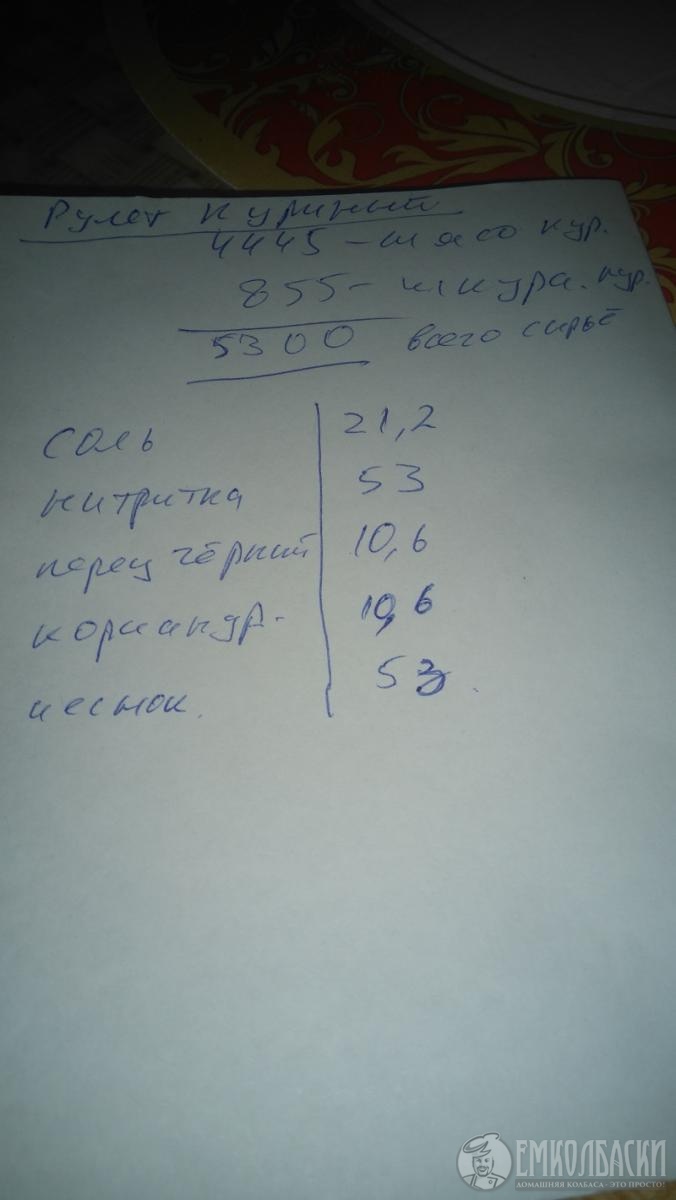 Рулет куриный
4445 - мясо кур.
855 - шкура. кур.
5300 всего сырьё
соль 21,2
нитритка 53
перец чёрный 10,6
кориандр. 10,6
чеснок. 53.
ЕМКОЛБАСКИ
ДОМАШНЯЯ КОЛБАСА - ЭТО ПРОСТО!